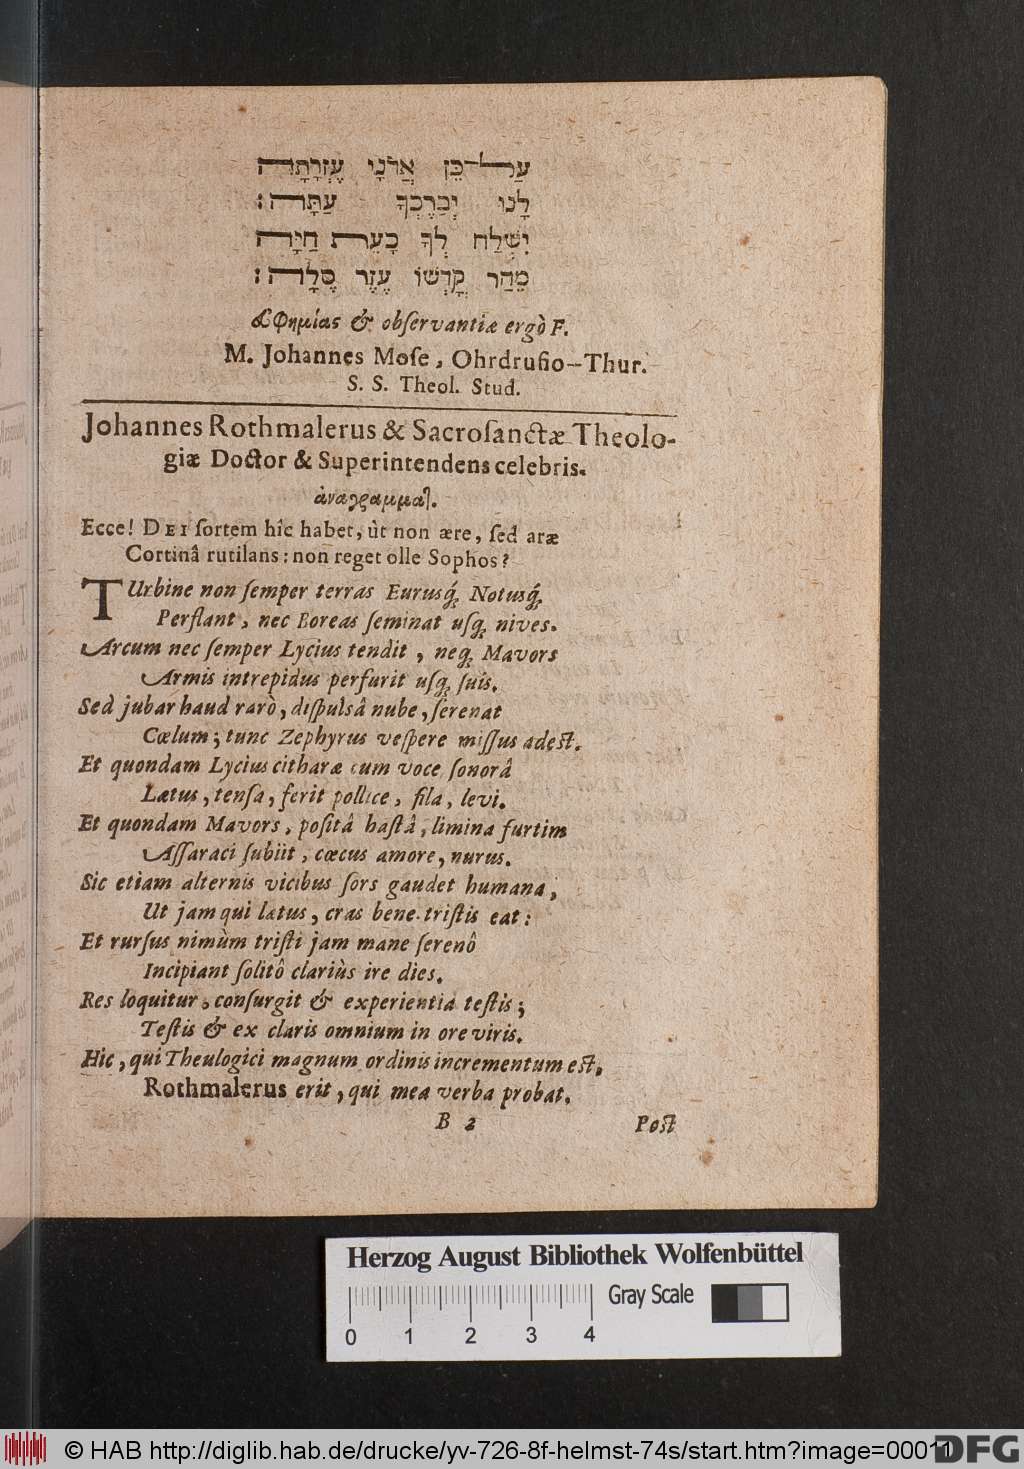 עַל־כֵּן אֲדֹנָי עֶזְרָתָה
לָנוּ יְבָרֶכְךָ עַתָּה׃
יִשְׁלַח לְךָ כָעֵת חַיָּה
מַהֵר קָדְשׁוֹ עֶזֶר סֶלָה׃
εὐφημίας & obſervantiæ ergò F.
M. Johannes Moſe, Ohrdrufio-Thur.
S. S. Theol. Stud.
Johannes Rothmalerus & Sacroſanctæ Theolo-
giæ Doctor & Superintendens celebris.
ἀναγραμματ.
Ecce! DEI ſortem hîc habet, ùt non ære, ſed aræ
Cortinâ rutilans: non reget olle Sophos?
TUrbine non ſemper terras Eurusq́; Notusq́;
Perflant, nec Boreas ſeminat uſq; nives.
Arcum nec ſemper Lycius tendit, neq; Mavors
Armis intrepidus perfurit uſq; ſuis.
Sed jubar haud rarò, diſpulsâ nube, ſerenat
Cœlum; tunc Zephyrus veſpere miſſus adeſt.
Et quondam Lycius citharæ cum voce ſonorâ
Lætus, tenſa, ferit pollice, fila, levi.
Et quondam Mavors, poſitâ haſtâ, limina furtim
Aſſaraci ſubiit, cœcus amore, nurus.
Sic etiam alternis vicibus ſors gaudet humana,
Ut jam qui lætus, cras bene triſtis eat:
Et rurſus nimùm triſti jam mane ſerenô
Incipiant ſolitô clariùs ire dies.
Res loquitur, conſurgit & experientia teſtis;
Teſtis & ex claris omnium in ore viris.
Hic, qui Theulogici magnum ordinis incrementum eſt,
Rothmalerus erit, qui mea verba probat.
B 2 Poſt
Herzog August Bibliothek Wolfenbüttel
Gray Scale
0 1 2 3 4
© HAB http://diglib.hab.de/drucke/yv-726-8f-helmst-74s/start.htm?image=00011
DFG